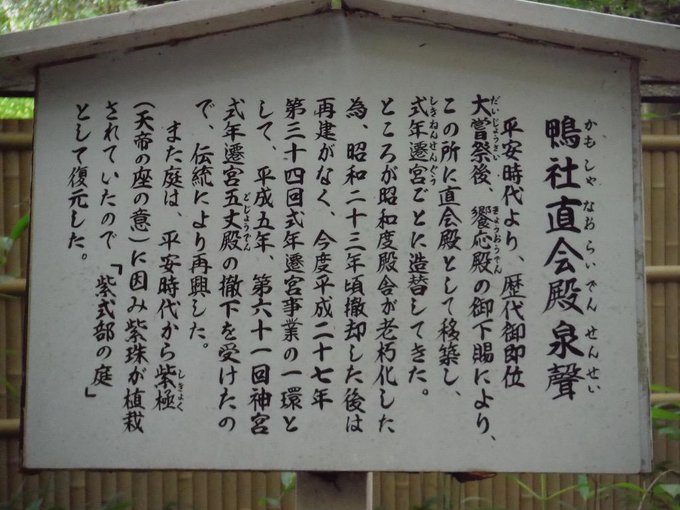 鴨社直会殿泉聲
かもしゃなおらいでんせんせい
平安時代より、歴代御即位
大嘗祭後、饗応殿の御下賜により、
だいじょうさい
きょうおうでん
この所に直会殿として移築し、
式年遷宮ごとに造替してきた。
しきねんせんぐう
ところが昭和度殿舎が老朽化した
為、昭和二十三年頃撤却した後は
再建がなく、今度平成二十七年
第三十四回式年遷宮事業の一環と
して、平成五年、第六十一回神宮
式年遷宮五丈殿の撤下を受けたの
どじょうでん
で、伝統により再興した。
また庭は、平安時代から紫極
しきょく
(天帝の座の意)に因み紫珠が植栽
されていたので「紫式部の庭」
として復元した。